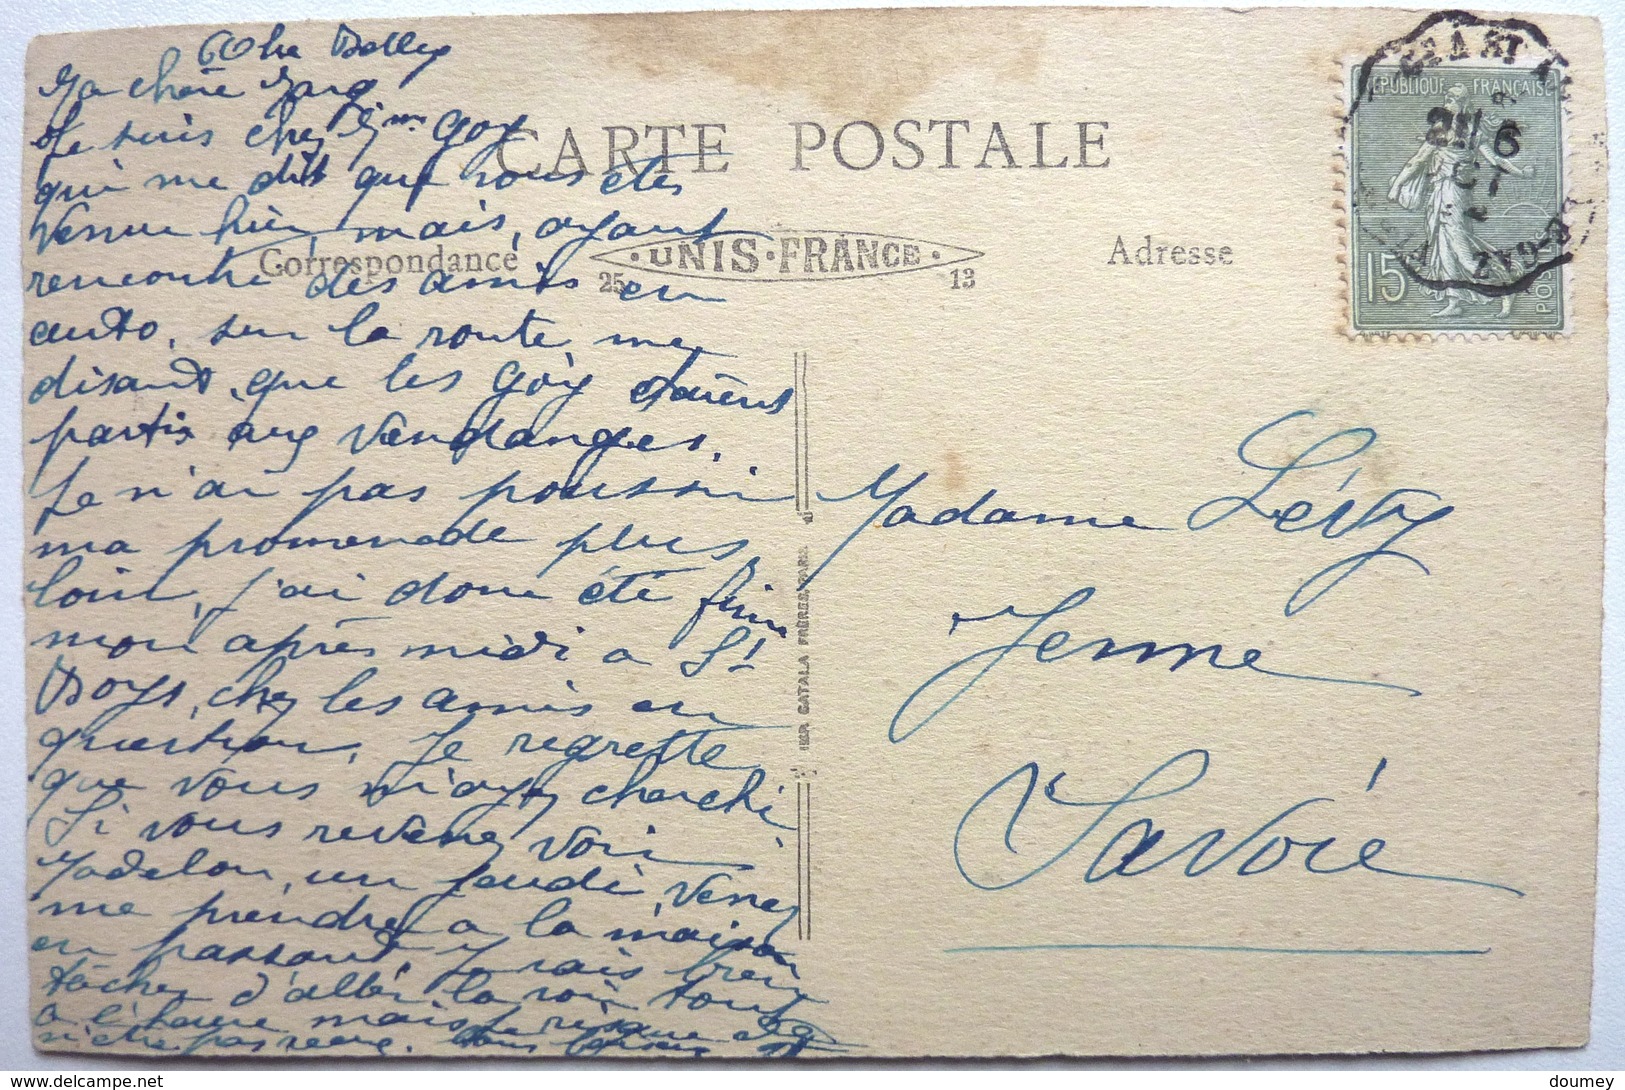 Ma chère
Je suis chez Mme Goy
qui me dit que vous êtes
venue hier, mais, ayant
rencontré des amis en
auto, sur la route, me
disant, que les Goÿ étaient
partis aux vendanges.
Je n'ai pas poussé
ma promenade plus
loin, j'ai donc été finir
mon après midi à St
Boys, chez les amis en
question. Je regrette
que vous m'ayez cherché.
Si vous revenez voir
Madelon, un jeudi, venez
me prendre à la maison
en passant. Je vais bien
tâcher d'aller la voir tout
à l'heure mais je risque de
n'être pas reçue.
CARTE POSTALE
Correspondance
UNIS·FRANCE
25 13
Adresse
IMP. CATALA FRÈRES, PARIS
REPUBLIQUE FRANÇAISE
15
POSTES
6
OCT
Madame Lévy
Yenne
Savoie
delcampe.net
doumey